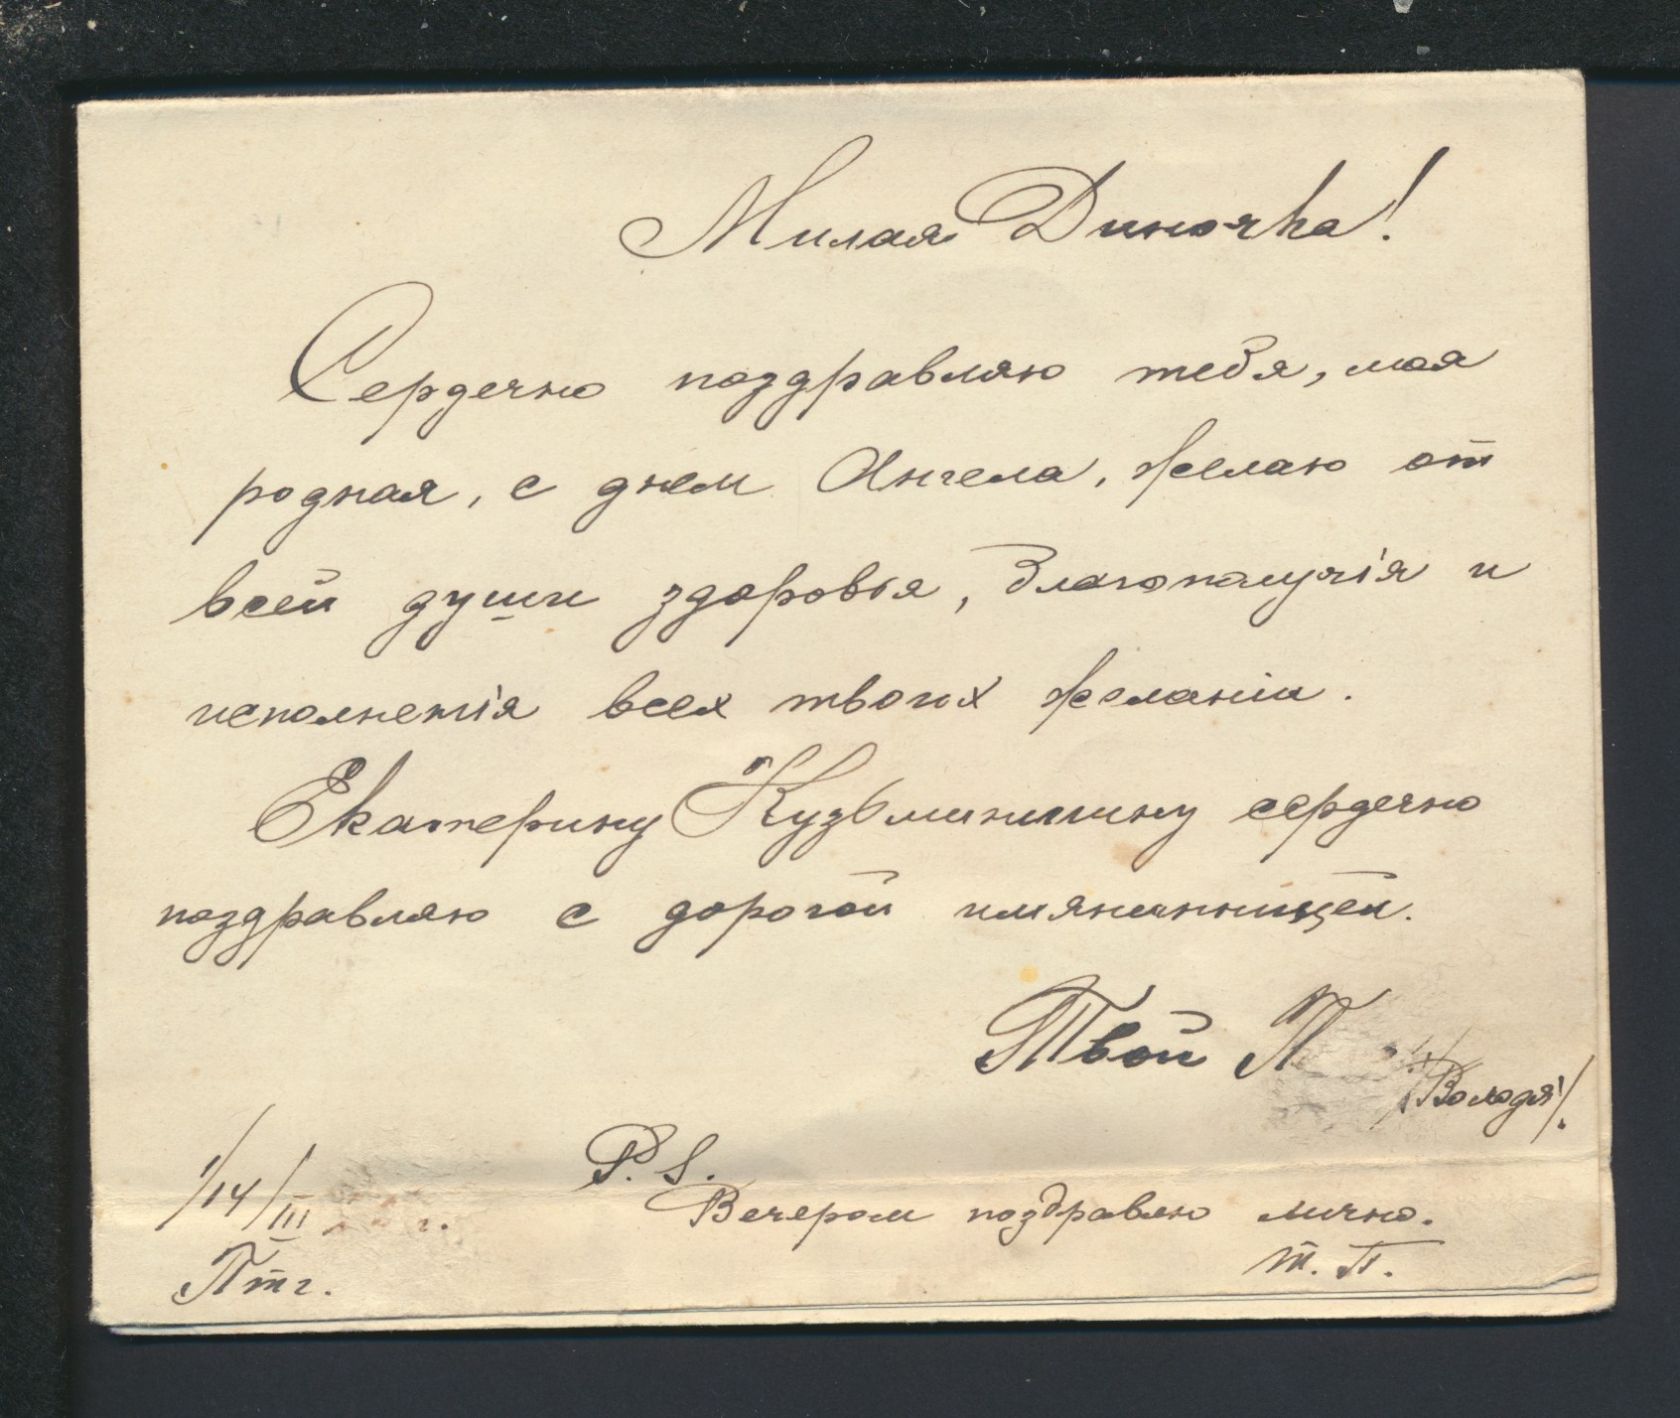 Милая Диночка!
Сердечно поздравляю тебя, моя
родная, с днем Ангела, желаю от
всей души здоровья, благополучія и
исполненія всех твоих желаніи.
Екатерину Кузьминишну сердечно
поздравляю с дорогой имянинницей.
Твой П
/Володя/.
1/14/III г.
Птг.
P.S.
Вечером поздравлю лично.
Т. П.